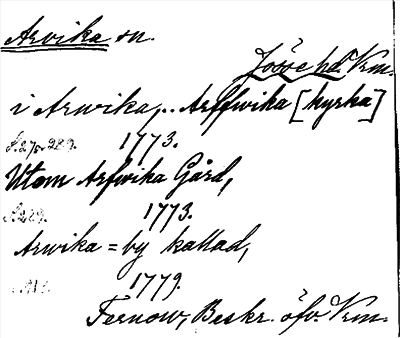 Arvika sn.
Jösse hd. Vrm.
i Arwika,.. Arffwika [kyrka]
1773.
Utom Arfwika Gård,
S. 279. 1773.
Arwika = by kallad,
1779.
Fernow, Beskr. öfv. Vrm.